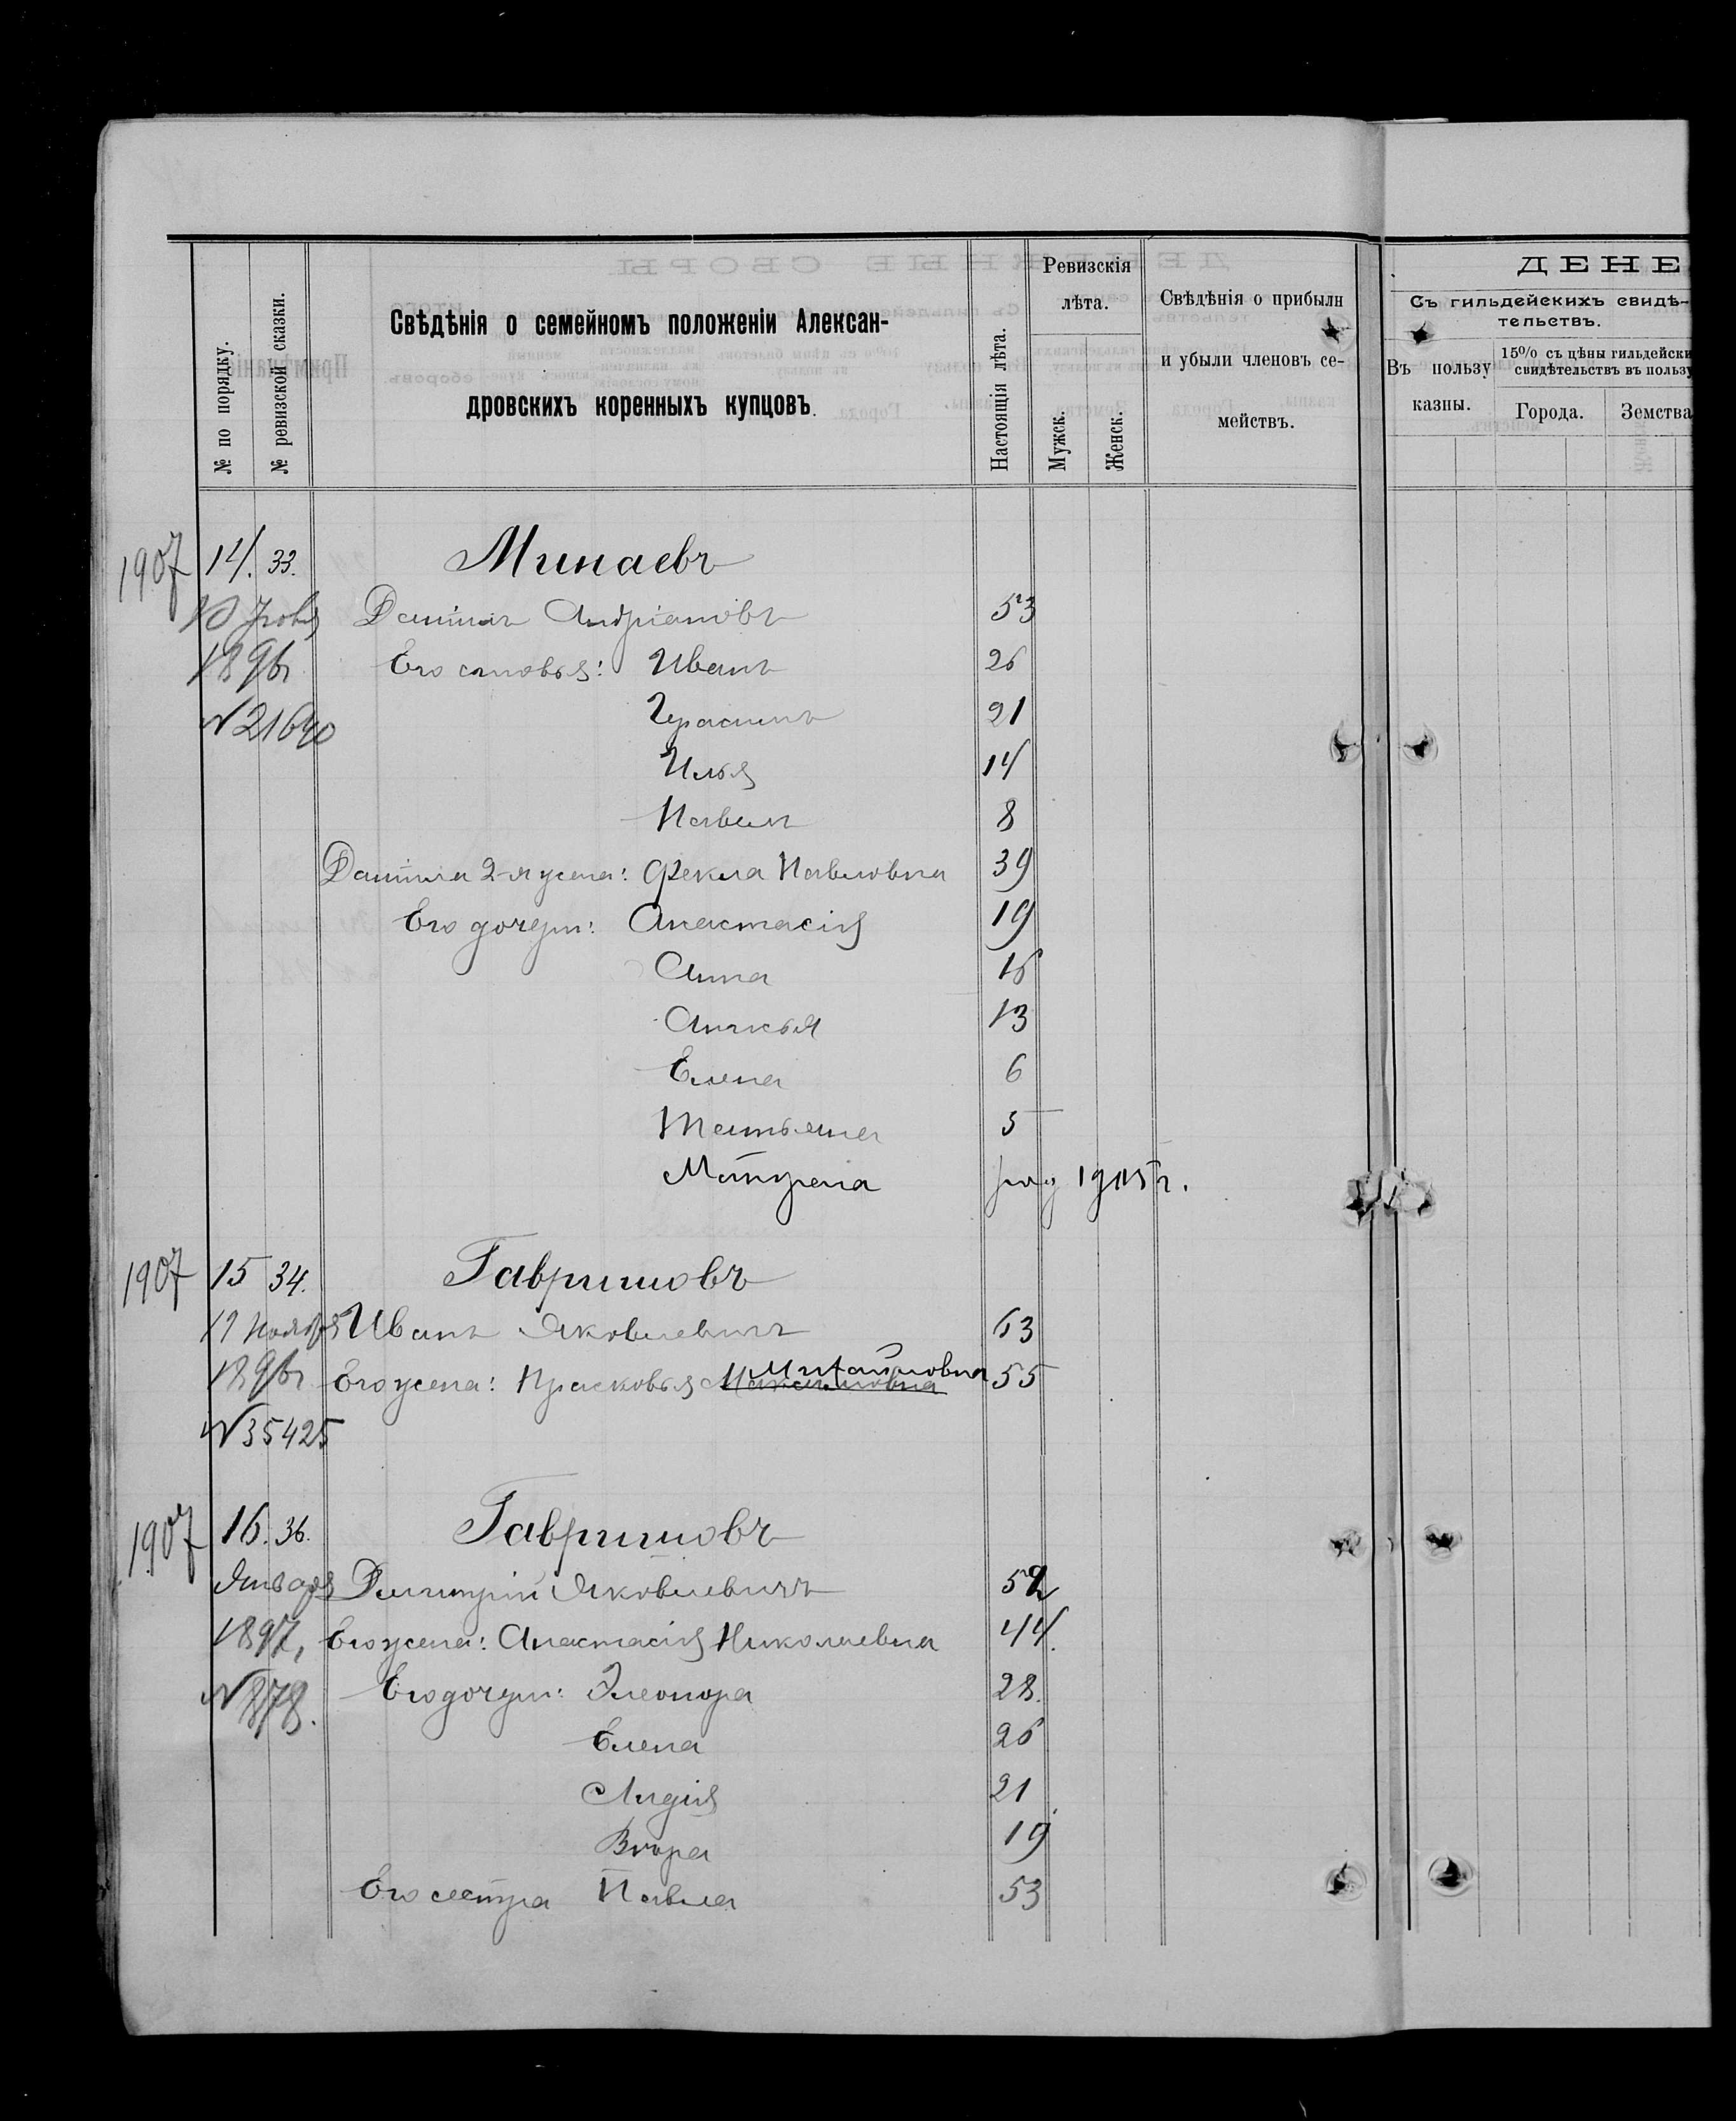 № по порядку.
№ ревизской сказки.
Свѣдѣнія о семейномъ положеніи Алексан-
дровскихъ коренныхъ купцовъ.
Настоящія лѣта.
Ревизскія
лѣта.
Мужск.
Женск.
Свѣдѣнія о прибыли
и убыли членовъ се-
мействъ.
ДЕНЕ
Съ гильдейскихъ свидѣ-
тельствъ.
Въ пользу
казны.
15% съ цѣны гильдейски
свидѣтельствъ въ пользу
Города.
Земства
1907 14. 33. Минаевъ
Даніилъ Андріановъ 53
1896г Его сыновья: Иванъ 26
№ 21640 Герасимъ 21
Илья 14
Павелъ 8
Даніила 2-я жена: Фекла Павловна 39
Его дочери: Анастасія 19
Анна 16
Анисья 13
Елена 6
Татьяна 5
Матрена род 1905 г.
1907 15 34. Гавриловъ
19 Ноября Иванъ Яковлевичъ 63
1896г. Его жена: Прасковья Максимовна Михайловна 55
№ 35425
1907 16. 36. Гавриловъ
Января Дмитрій Яковлевичъ 52
1897, Его жена: Анастасія Николаевна 44.
№ 878. Его дочери: Элеонора 28.
Елена 26
Лидія 21
Вѣра 19
Его сестра Павла 53